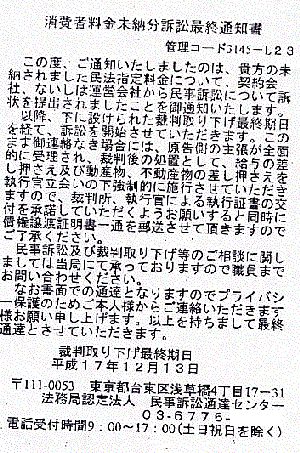 消費者料金未納分訴訟最終通知書
管理コード3145ーL23
この度、ご通知いたしましたのは、貴方の未
納されました民法指定料金について、契約会
社、ないしは運営会社から民事訴訟について訴
状を提出されましたことを御通知いたします。
以降、下に設けられた裁判取り下げ最終期日
を経て、訴訟を開始させていただきます。この
まま御連絡なき場合には、原告側の主張が全面
的に受理され、裁判後の処置として、給与の差
し押さえ及び動産物、不動産物の差し押さえを
執行官立会いの下強制的に施行させていただき
ますので、裁判所、執行官による執行証書の交
付を承諾していただくようお願いすると同時に
債権譲渡証明書一通を郵送させて頂きますので
ご了承ください。
民事訴訟及び裁判取り下げ等のご相談に関し
ましては当局にて承っておりますので職員まで
お問い合わせください。
なお書面での通達となりますのでプライバシ
ー保護のためご本人様からご連絡いただきます
様お願い申し上げます。以上を持ちまして最終
通達とさせていただきます。
裁判取り下げ最終期日
平成17年12月13日
〒111-0053 東京都台東区浅草橋4丁目17ー31
法務局認定法人 民事訴訟通達センター
03-6775-
電話受付時間9:00〜17:00(土日祝日を除く)